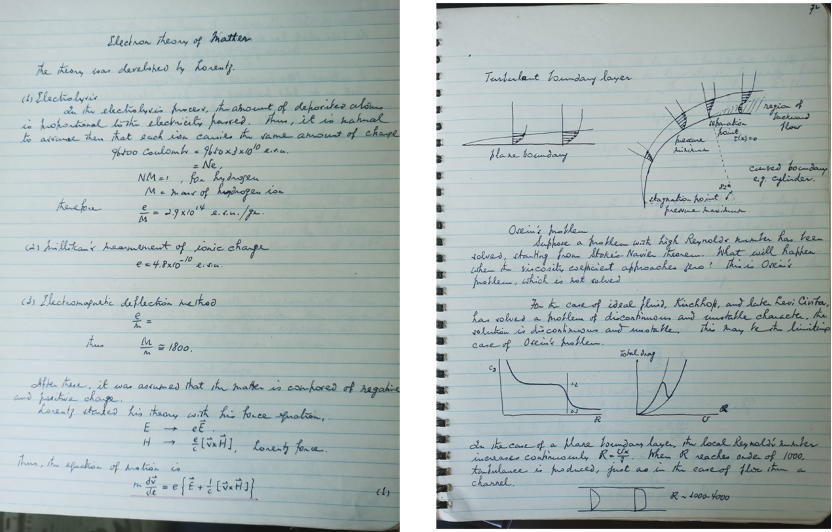 Electron theory of Matter
The theory was developed by Lorentz.
(1) Electrolysis
In the electrolysis process, the amount of deposited atoms
is proportional to the electricity passed. Thus, it is natural
to assume then that each ion carries the same amount of charge
96500 Coulombs = 9650 x 3 x 10^10 e.s.u.
= Ne,
NM = 1, for hydrogen
M = mass of hydrogen ion
therefore e/M = 2.9 x 10^14 e.s.u./gr.
(2) Millikan's measurement of ionic charge
e = 4.8 x 10^-10 e.s.u.
(3) Electromagnetic deflection method
e/m =
thus M/m ≅ 1800.
After these, it was assumed that the matter is composed of negative
and positive charge.
Lorentz started his theory with his force equation,
E → eE⃗.
H → e/c [v⃗ x H⃗], Lorentz force.
Thus, the equation of motion is
m dv⃗/dt = e { E⃗ + 1/c [v⃗ x H⃗] }
(1)
Turbulent boundary layer
plane boundary
separation
point
region of
backward
flow
pressure
minimum
curved boundary
e.g. cylinder.
stagnation point
pressure maximum
Oseen's problem
Suppose a problem with high Reynolds number has been
solved, starting from Stokes Navier theorem. What will happen
when the viscosity coefficient approaches zero? This is Oseen's
problem, which is not solved
For the case of ideal fluid, Kirchhoff, and late Levi Civita,
has solved a problem of discontinuous and unstable character, the
solution is discontinuous and unstable. This may be the limiting
case of Oseen's problem.
Total drag
R
U
In the case of a plane boundary layer, the local Reynold's number
increases continuously R = Ux/ν. When R reaches order of 1000,
turbulence is produced, just as in the case of flow thru a
channel.
R ~ 1000-4000